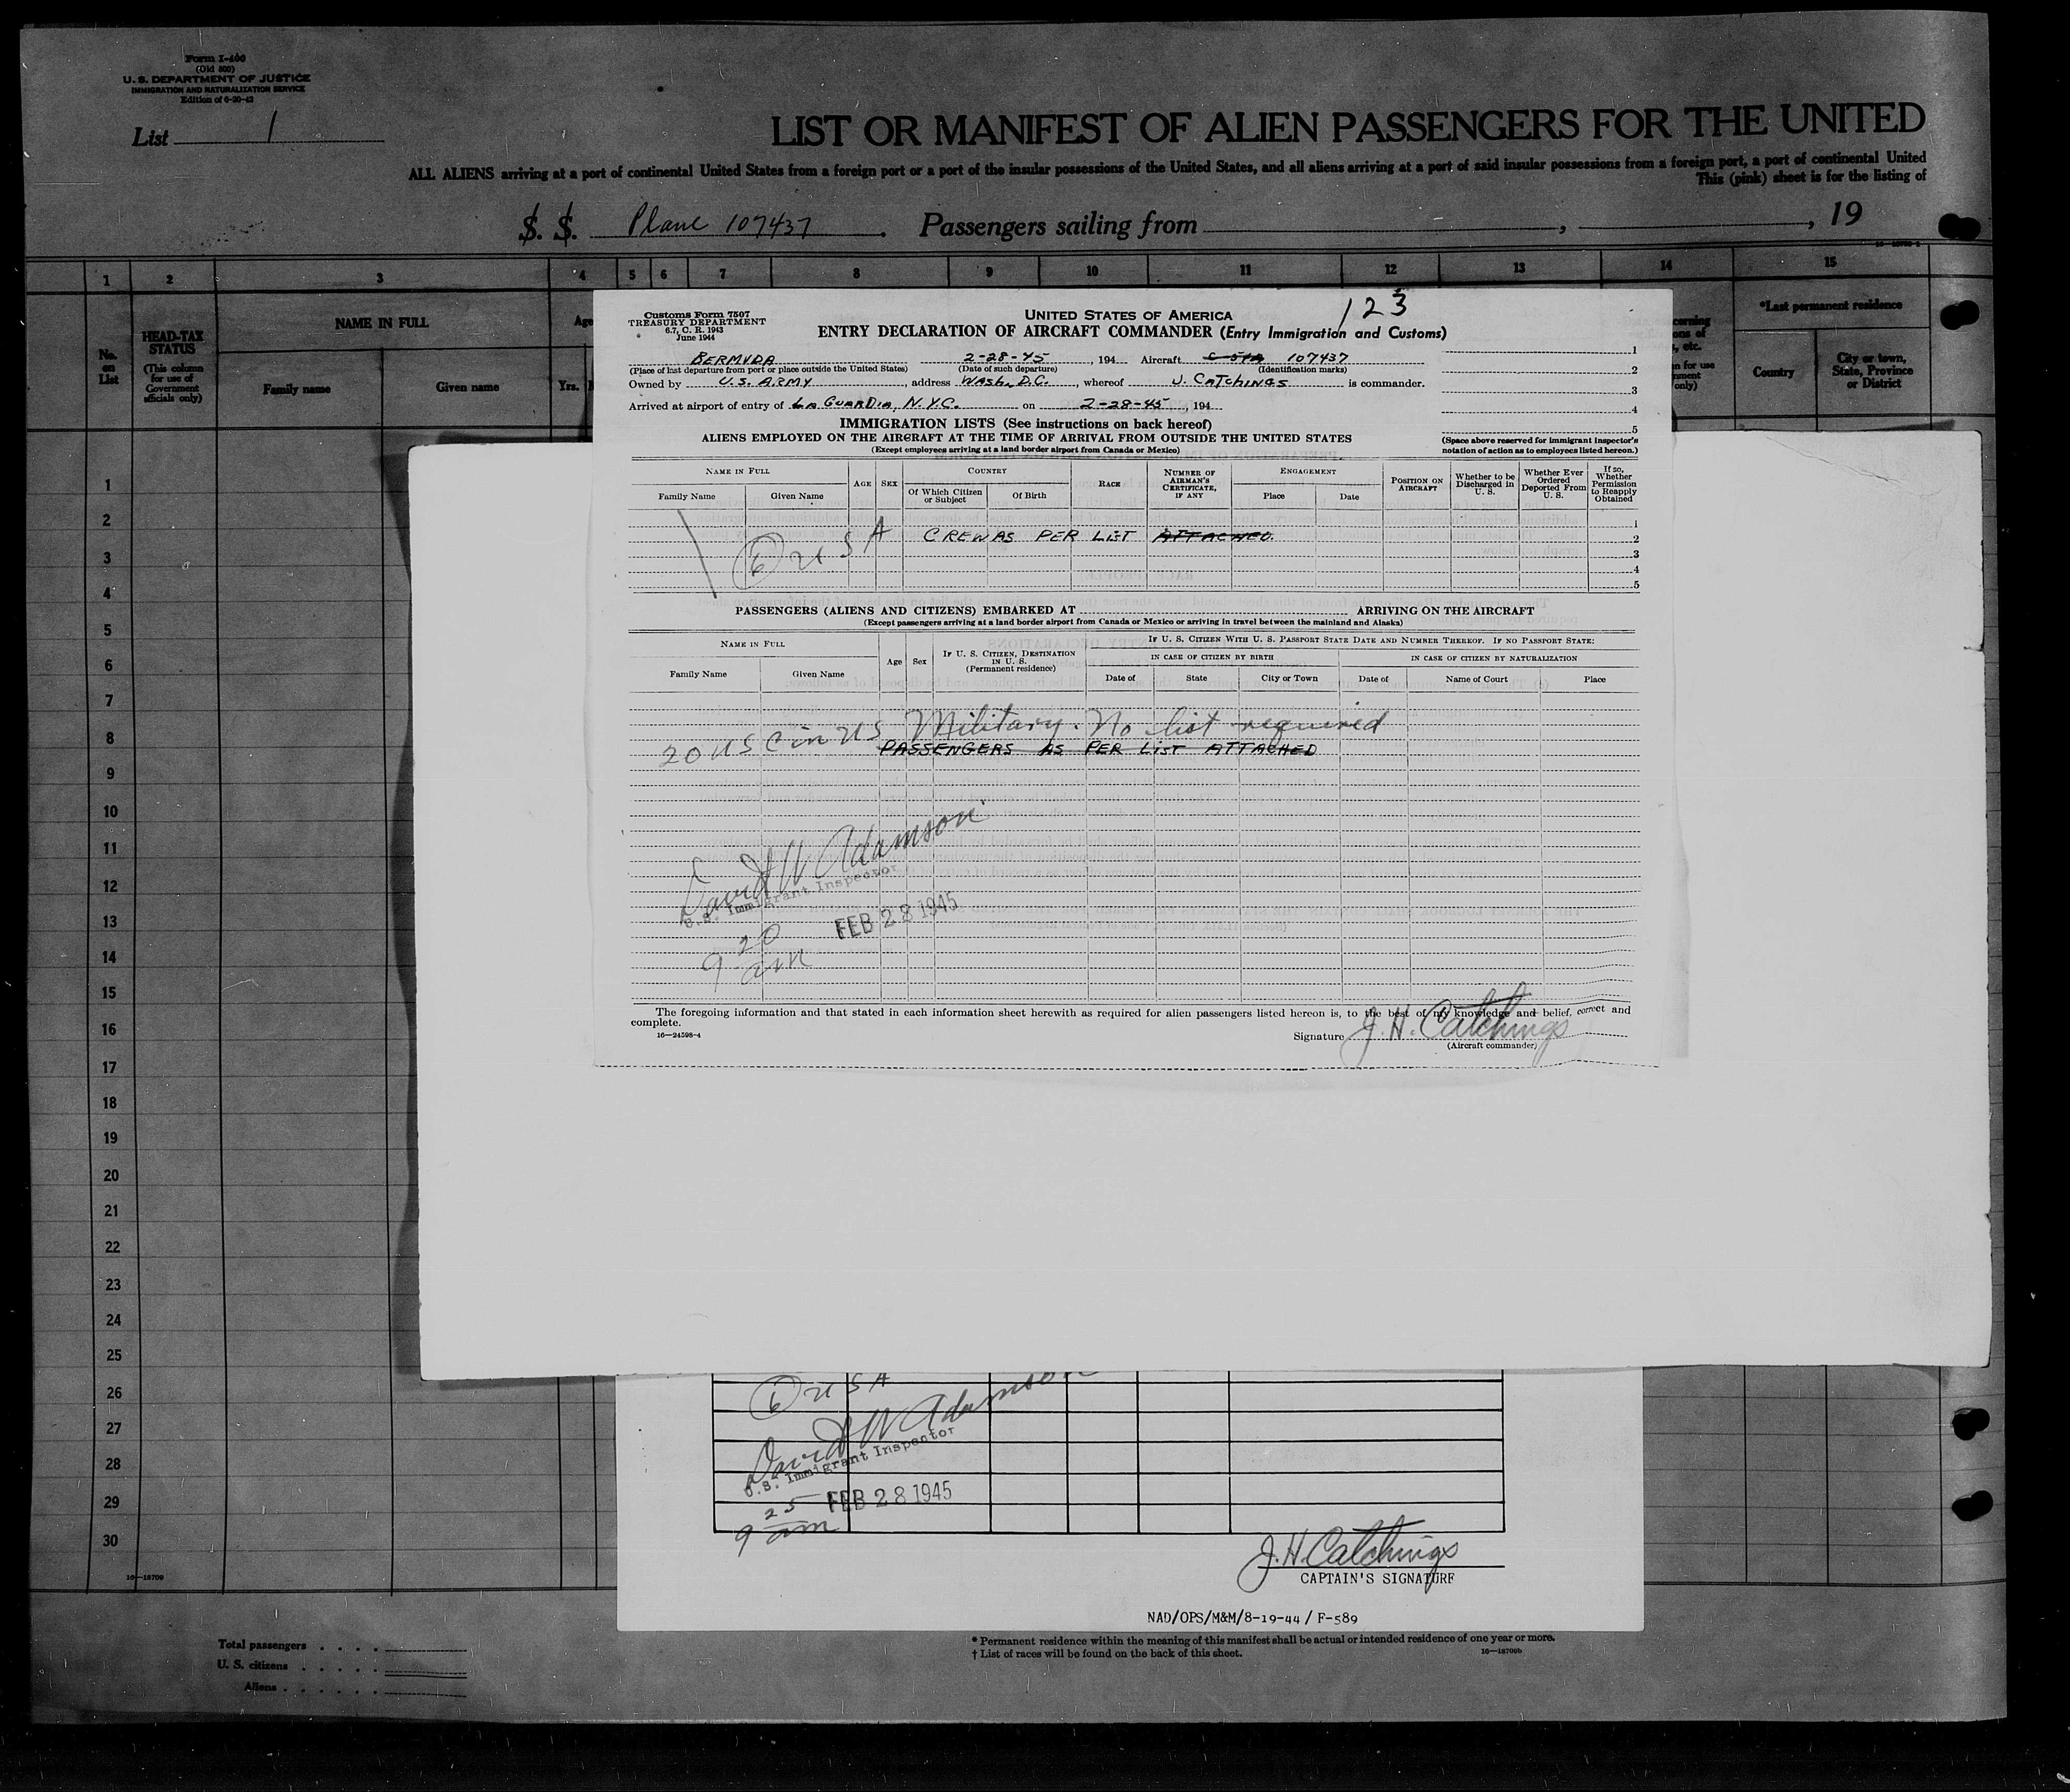 Form I-400
(Old 500)
U. S. DEPARTMENT OF JUSTICE
IMMIGRATION AND NATURALIZATION SERVICE
Edition of 6-20-42
List 1
LIST OR MANIFEST OF ALIEN PASSENGERS FOR THE UNITED
ALL ALIENS arriving at a port of continental United States from a foreign port or a port of the insular possessions of the United States, and all aliens arriving at a port of said insular possessions from a foreign port, a port of continental United
This (pink) sheet is for the listing of
S. S. Plane 107437. Passengers sailing from , , 19
1 2 3 4 5 6 7 8 9 10 11 12 13 14 15
No. on List
HEAD-TAX STATUS
(This column for use of Government officials only)
NAME IN FULL
Family name Given name
Age
Yrs.
*Last permanent residence
Country
City or town, State, Province or District
123
Customs Form 7507
TREASURY DEPARTMENT
6.7, C. R. 1943
June 1944
UNITED STATES OF AMERICA
ENTRY DECLARATION OF AIRCRAFT COMMANDER (Entry Immigration and Customs)
BERMUDA 2-28-45, 194 Aircraft 107437
(Place of last departure from port or place outside the United States) (Date of such departure) (Identification marks)
Owned by U.S. ARMY, address WASH. D.C., whereof J. CATCHINGS is commander.
Arrived at airport of entry of LA GUARDIA, N.Y.C. on 2-28-45, 194
1
2
3
4
5
(Space above reserved for immigrant inspector's notation of action as to employees listed hereon.)
IMMIGRATION LISTS (See instructions on back hereof)
ALIENS EMPLOYED ON THE AIRCRAFT AT THE TIME OF ARRIVAL FROM OUTSIDE THE UNITED STATES
(Except employees arriving at a land border airport from Canada or Mexico)
NAME IN FULL
Family Name Given Name
AGE SEX
COUNTRY
Of Which Citizen or Subject Of Birth
RACE
NUMBER OF AIRMAN'S CERTIFICATE, IF ANY
ENGAGEMENT
Place Date
POSITION ON AIRCRAFT
Whether to be Discharged in U. S.
Whether Ever Ordered Deported From U. S.
If so, Whether Permission to Reapply Obtained
1
2
3
4
5
6 USA CREW AS PER LIST ATTACHED.
PASSENGERS (ALIENS AND CITIZENS) EMBARKED AT ARRIVING ON THE AIRCRAFT
(Except passengers arriving at a land border airport from Canada or Mexico or arriving in travel between the mainland and Alaska)
NAME IN FULL
Family Name Given Name
Age Sex
IF U. S. CITIZEN, DESTINATION IN U. S.
(Permanent residence)
IF U. S. CITIZEN WITH U. S. PASSPORT STATE DATE AND NUMBER THEREOF. IF NO PASSPORT STATE:
IN CASE OF CITIZEN BY BIRTH IN CASE OF CITIZEN BY NATURALIZATION
Date of State City or Town Date of Name of Court Place
20 US C in US Military. No list required
PASSENGERS AS PER LIST ATTACHED
David W Adamson
U.S. Immigrant Inspector
FEB 28 1945
9 20 am
The foregoing information and that stated in each information sheet herewith as required for alien passengers listed hereon is, to the best of my knowledge and belief, correct and
complete.
16—24598-4
Signature J. H. Catchings
(Aircraft commander)
1
2
3
4
5
6
7
8
9
10
11
12
13
14
15
16
17
18
19
20
21
22
23
24
25
26
27
28
29
30
6 USA
David W Adamson
U.S. Immigrant Inspector
FEB 28 1945
9 25 am
J. H. Catchings
CAPTAIN'S SIGNATURE
NAD/OPS/M&M/8-19-44 / F-589
16—18709
Total passengers
U. S. citizens
Aliens
* Permanent residence within the meaning of this manifest shall be actual or intended residence of one year or more.
† List of races will be found on the back of this sheet.
16—18709b